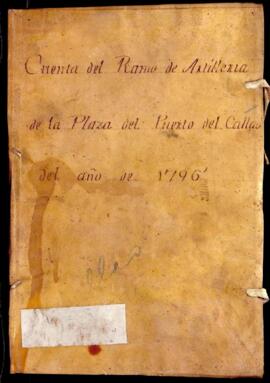 Cuenta del Ramo de Artilleria
de la Plaza del Puerto del Callao
del año de 1796